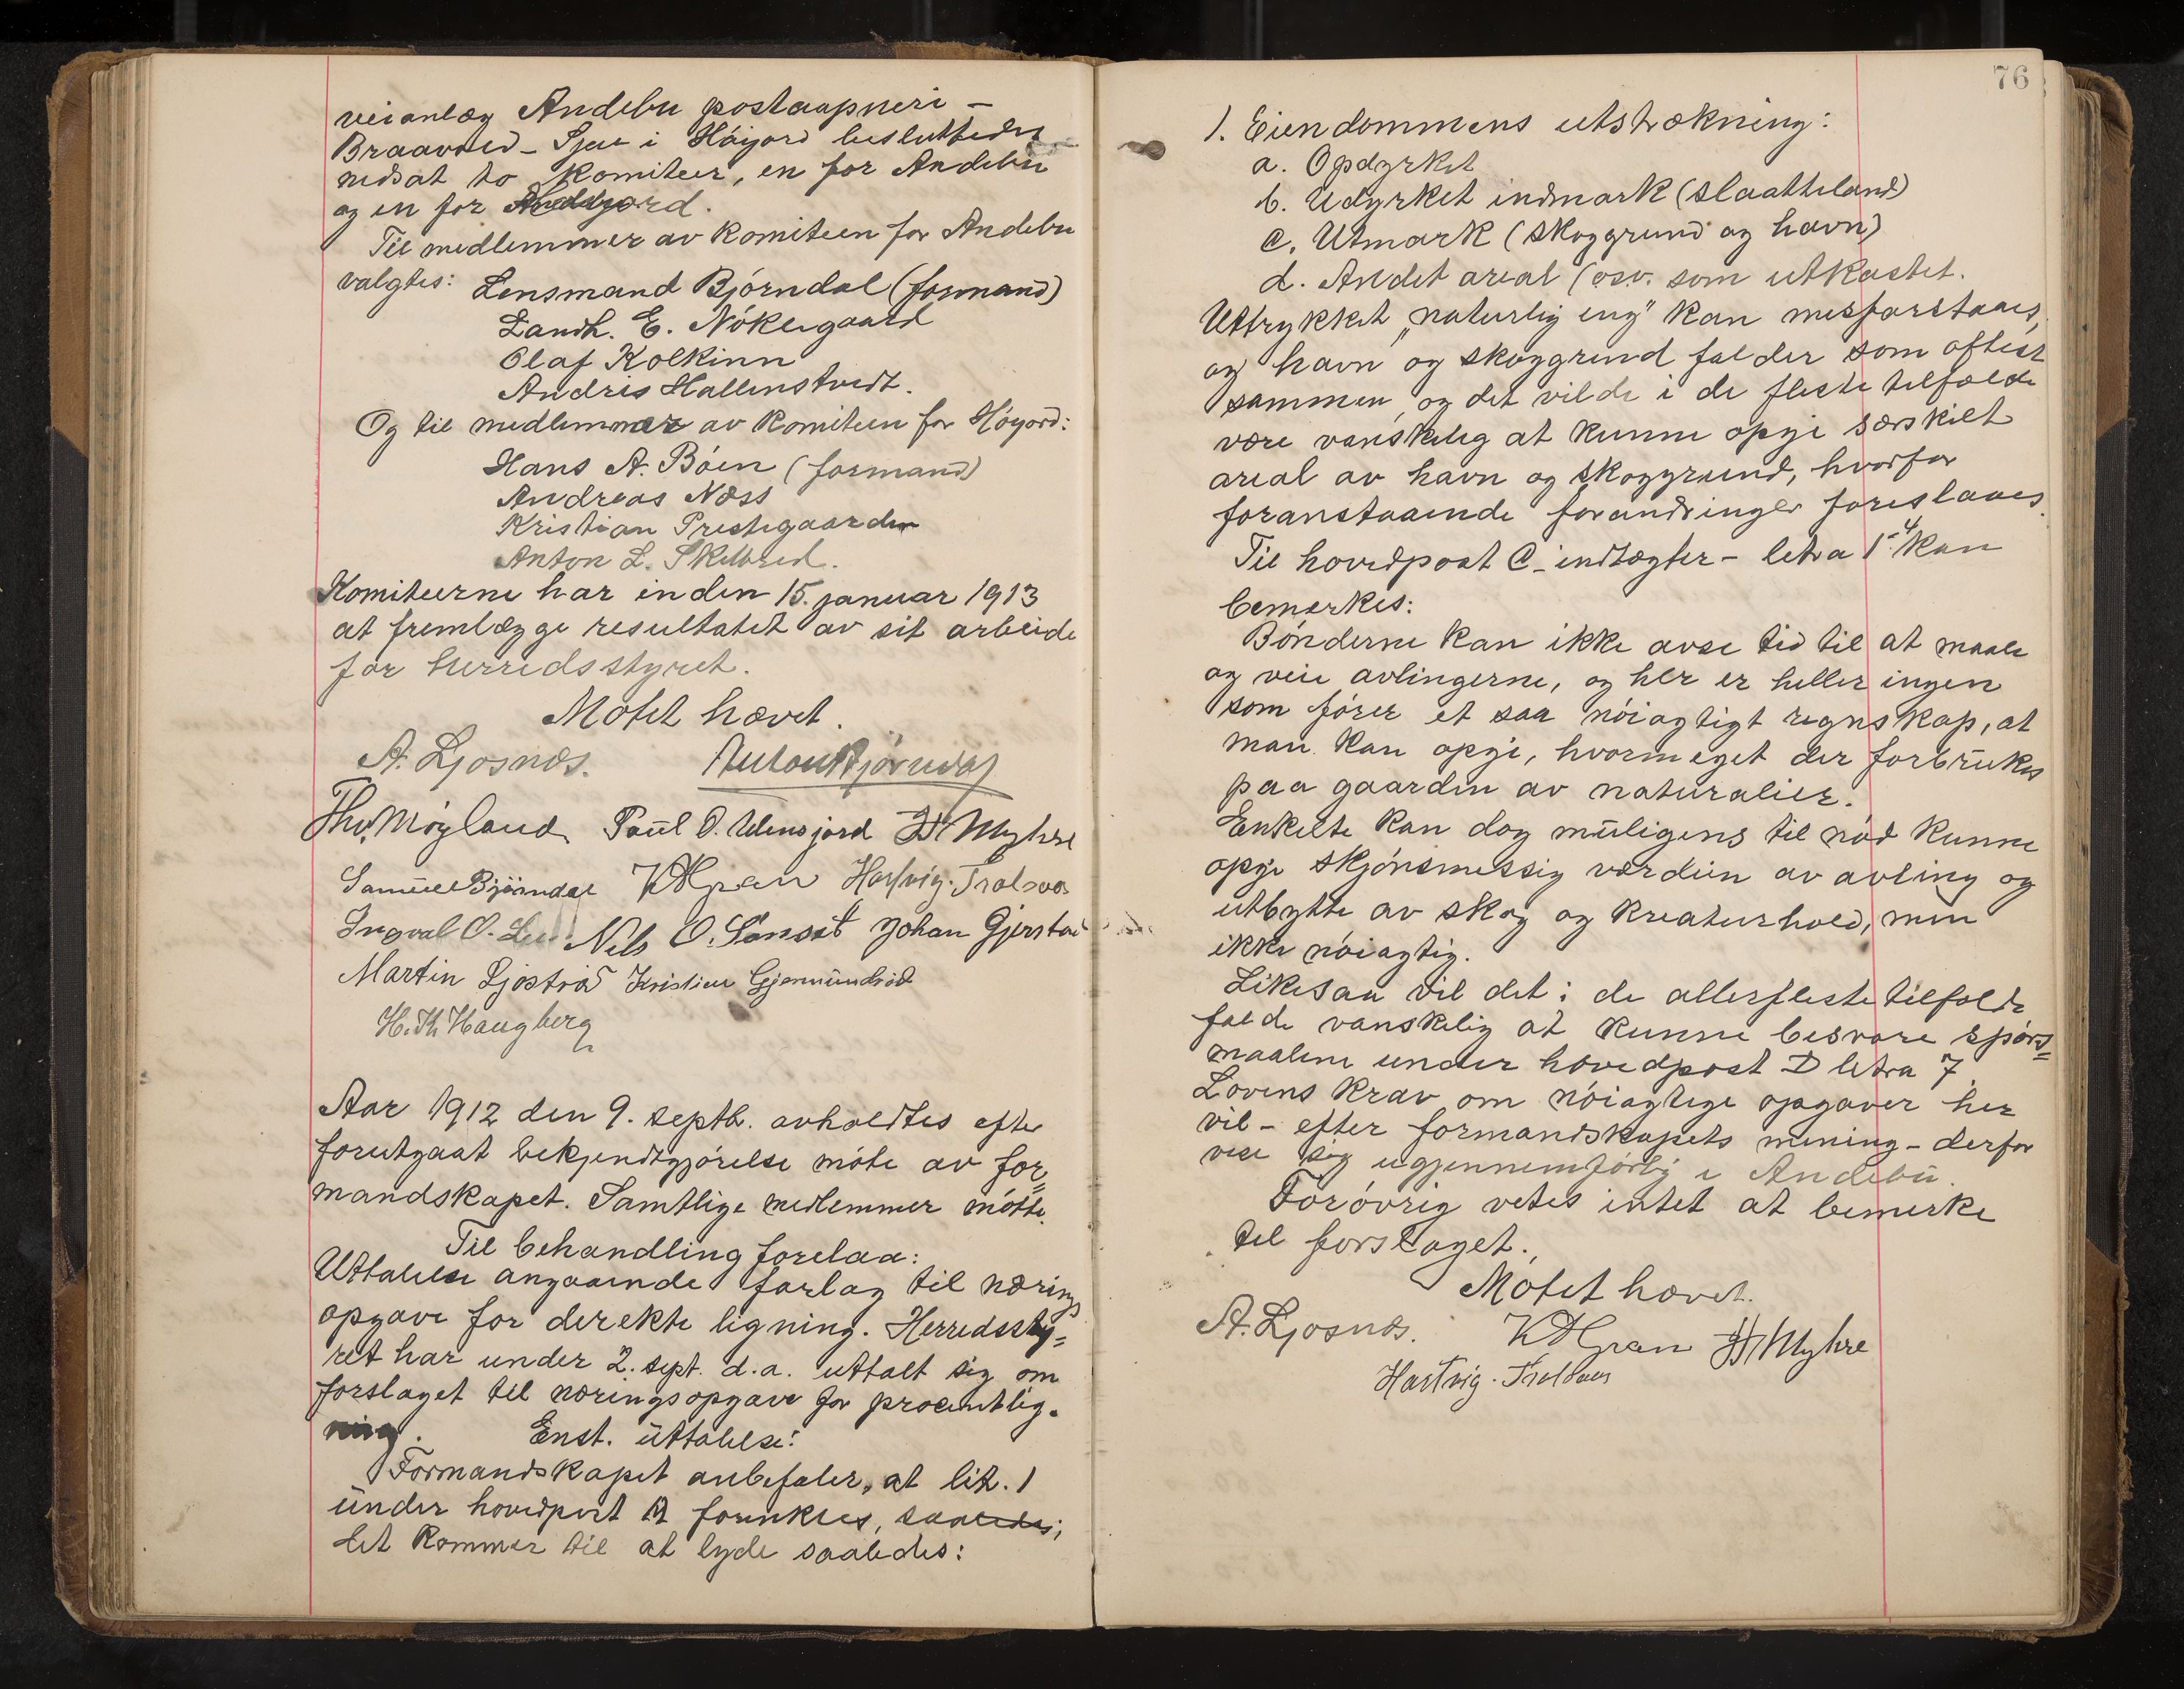 veianlæg Andebu postaapneri –
Braavold – Sjue i Høijord besluttedes
nedsat to komiteer, en for Andebu
og en for
Til medlemmer av komiteen for Andebu
valgtes: Lensmand Bjørndal (formand)
Landh. E. Nøklegaard
Olaf Kolkinn
Andreas Hallenstvedt.
Og til medlemmer av komiteen for Høyord:
Hans A. Bøen (formand)
Andreas Næss
Kristian Prestegaarden
Anton L. Skelbred.
Komiteerne har inden 15. januar 1913
at fremlægge resultatet av sit arbeide
for herredsstyret.
Møtet hævet.
A. Ljosnæs. Anton Bjørndal
Thv. Møyland Paul O. Ulensjord H Myhre
Samuel Bjørndal K A Gran Hartvig Trolsaas
Ingval O. Nils O. Sønset Johan Gjerstad
Martin Ljøstrad Kristian Gjermundrød
H. Th Haugberg
Aar 1912 den 9. septb. avholdtes efter
forutgaat bekjendtgjørelse møte av for=
mandskapet. Samtlige medlemmer møtte.
Til behandling forelaa:
Uttalelse angaaende forlag til nærings
opgave for direkte ligning. Herredssty=
ret har under 2. sept. d.a. uttalt sig om
forslaget til næringsopgave for procentlig-
ning. Enst. uttalelse:
Formandskapet anbefaler, at lit. 1
under hovedpost A forenkles, saaledes;
det kommer til at lyde saaledes:
76
1. Eiendommens utstrækning:
a. Opdyrket
b. Udyrket indmark (slaatteland)
c. Utmark (skoggrund og havn)
d. Andet areal (osv. som utkastet.
Uttrykket "naturlig eng" kan misforstaaes,
og havn og skoggrund falder som oftest
sammen, og det vilde i de fleste tilfælde
være vanskelig at kunne opgi særskilt
areal av havn og skoggrund, hvorfor
foranstaaende forandringer foreslaaes.
Til hovedpost C – indtægter – letra 1-4 kan
bemerkes:
Bønderne kan ikke avse tid til at maale
og veie avlingerne, og her er heller ingen
som fører et saa nøiagtigt regnskap, at
man kan opgi, hvormeget der forbrukes
paa gaarden av naturalier.
Enkelte kan dog muligens til nød kunne
opgi skjønsmessig værdien av avling og
utbytte av skog og kreaturhold, men
ikke nøiagtig.
Likesaa vil det i de allerfleste tilfælde
falde vanskelig at kunne besvare spørs=
maalene under hovedpost D letra 7.
Lovens krav om nøiagtige opgaver her
vil – efter formandskapets mening – derfor
vise sig ugjennemførlig i Andebu.
Forøvrig vetes intet at bemerke
til forslaget.
Møtet hævet.
A. Ljosnæs. K A Gran H Myhre
Hartvig Trolsaas